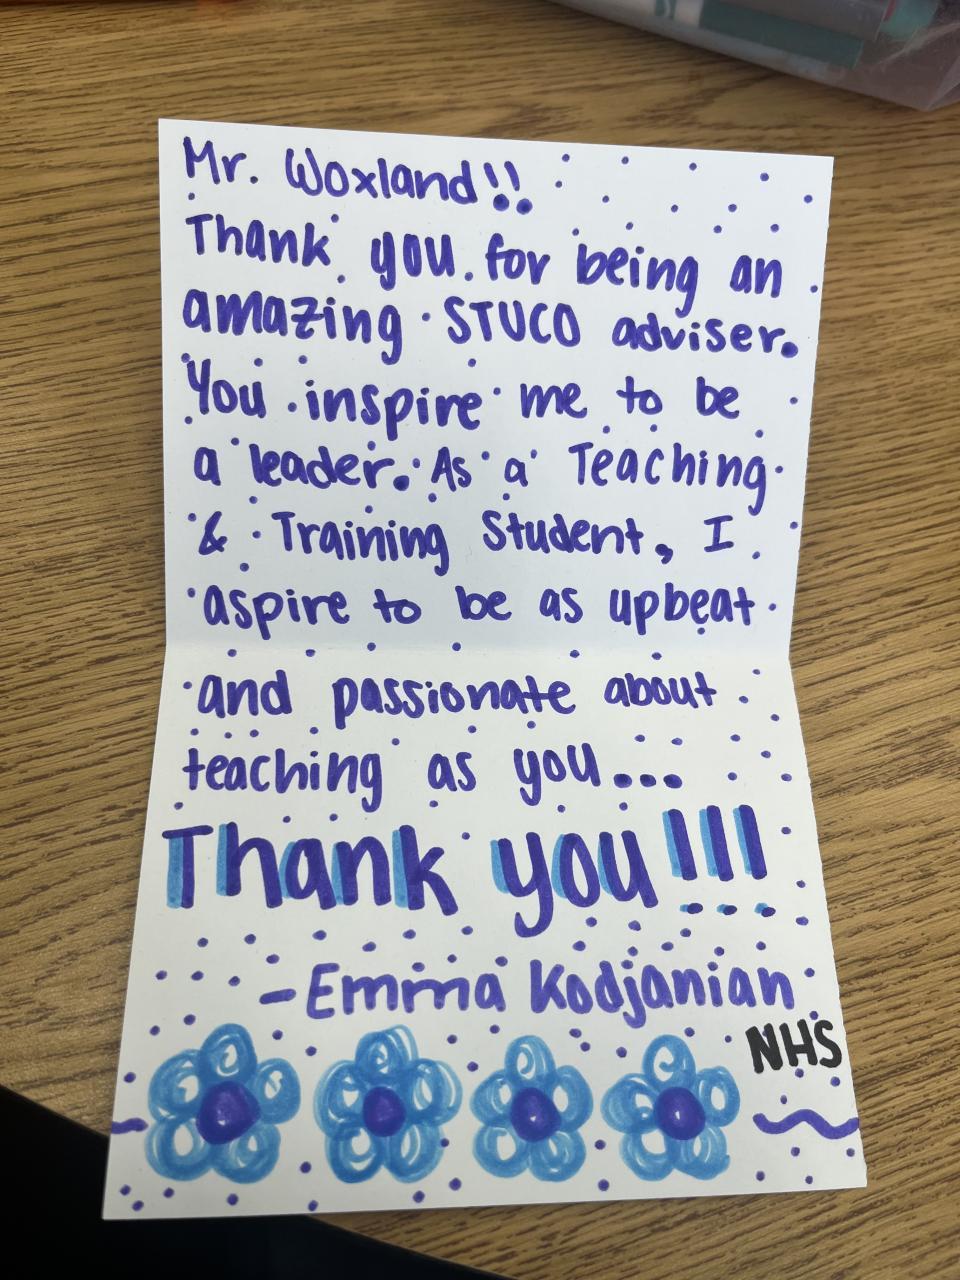 Mr. Woxland!!
Thank you for being an
amazing STUCO adviser.
You inspire me to be
a leader. As a Teaching
& Training Student, I
aspire to be as upbeat
and passionate about
teaching as you...
Thank you!!!
-Emma Kodjanian
NHS